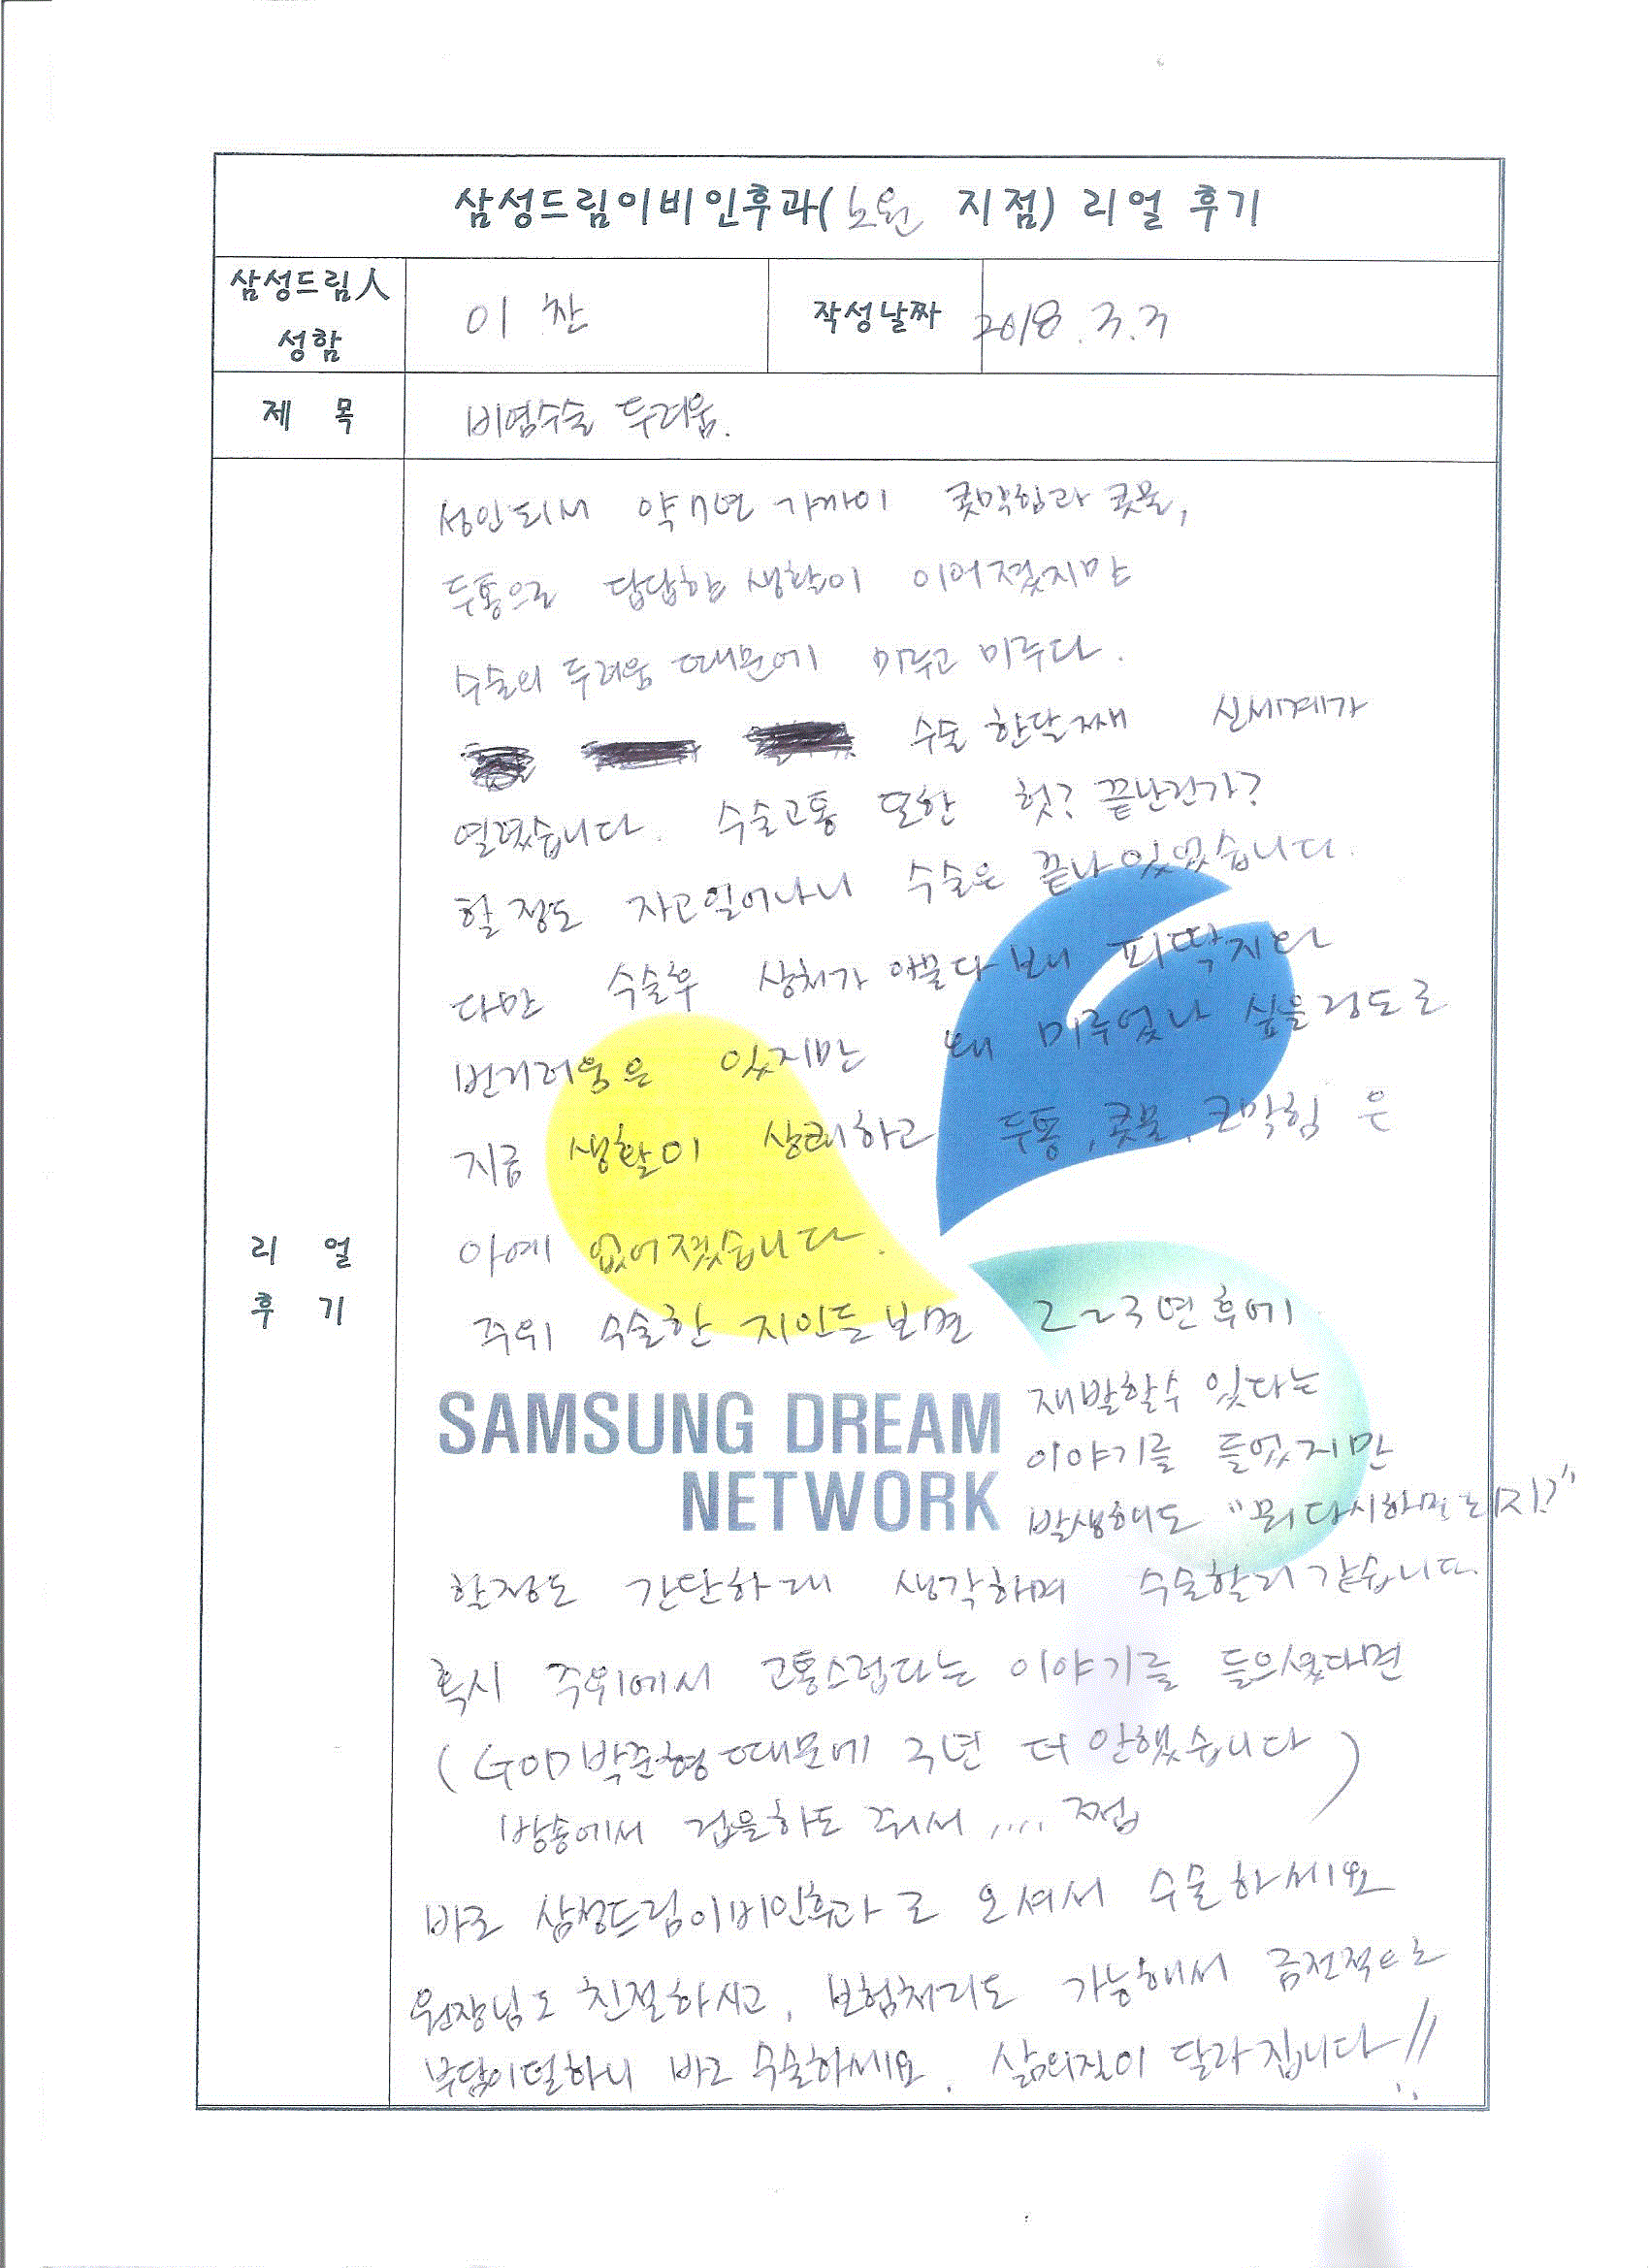 삼성드림이비인후과(노원 지점) 리얼 후기
삼성드림人 성함
이 찬
작성날짜
2018. 3. 3
제 목
비염수술 두려움.
리 얼 후 기
성인되서 약 7년 가까이 콧막힘과 콧물,
두통으로 답답한 생활이 이어졌지만
수술의 두려움 때문에 미루고 미루다.
수술 한달째 신세계가
열렸습니다. 수술고통 또한 헛? 끝난건가?
할 정도 자고일어나니 수술은 끝나있었습니다.
다만 수술후 상처가 아물다보니 피딱지와
번거러움은 있지만 왜 미루었나 싶을정도로
지금 생활이 상쾌하고 두통, 콧물, 코막힘 은
아예 없어졌습니다.
주위 수술한 지인들보면 2~3년후에
재발할수 있다는
이야기를 들었지만
SAMSUNG DREAM
NETWORK
발생해도 "뭐 다시하면 되지?"
할정도 간단하게 생각하며 수술할거 같습니다.
혹시 주위에서 고통스럽다는 이야기를 들으셨다면
(GOD 박준형 때문에 3년 더 안했습니다)
방송에서 겁을하도 줘서 .... 쩝
바로 삼성드림이비인후과로 오셔서 수술하세요
원장님도 친절하시고, 보험처리도 가능해서 금전적으로
부담이덜하니 바로 수술하세요. 삶의질이 달라집니다!!